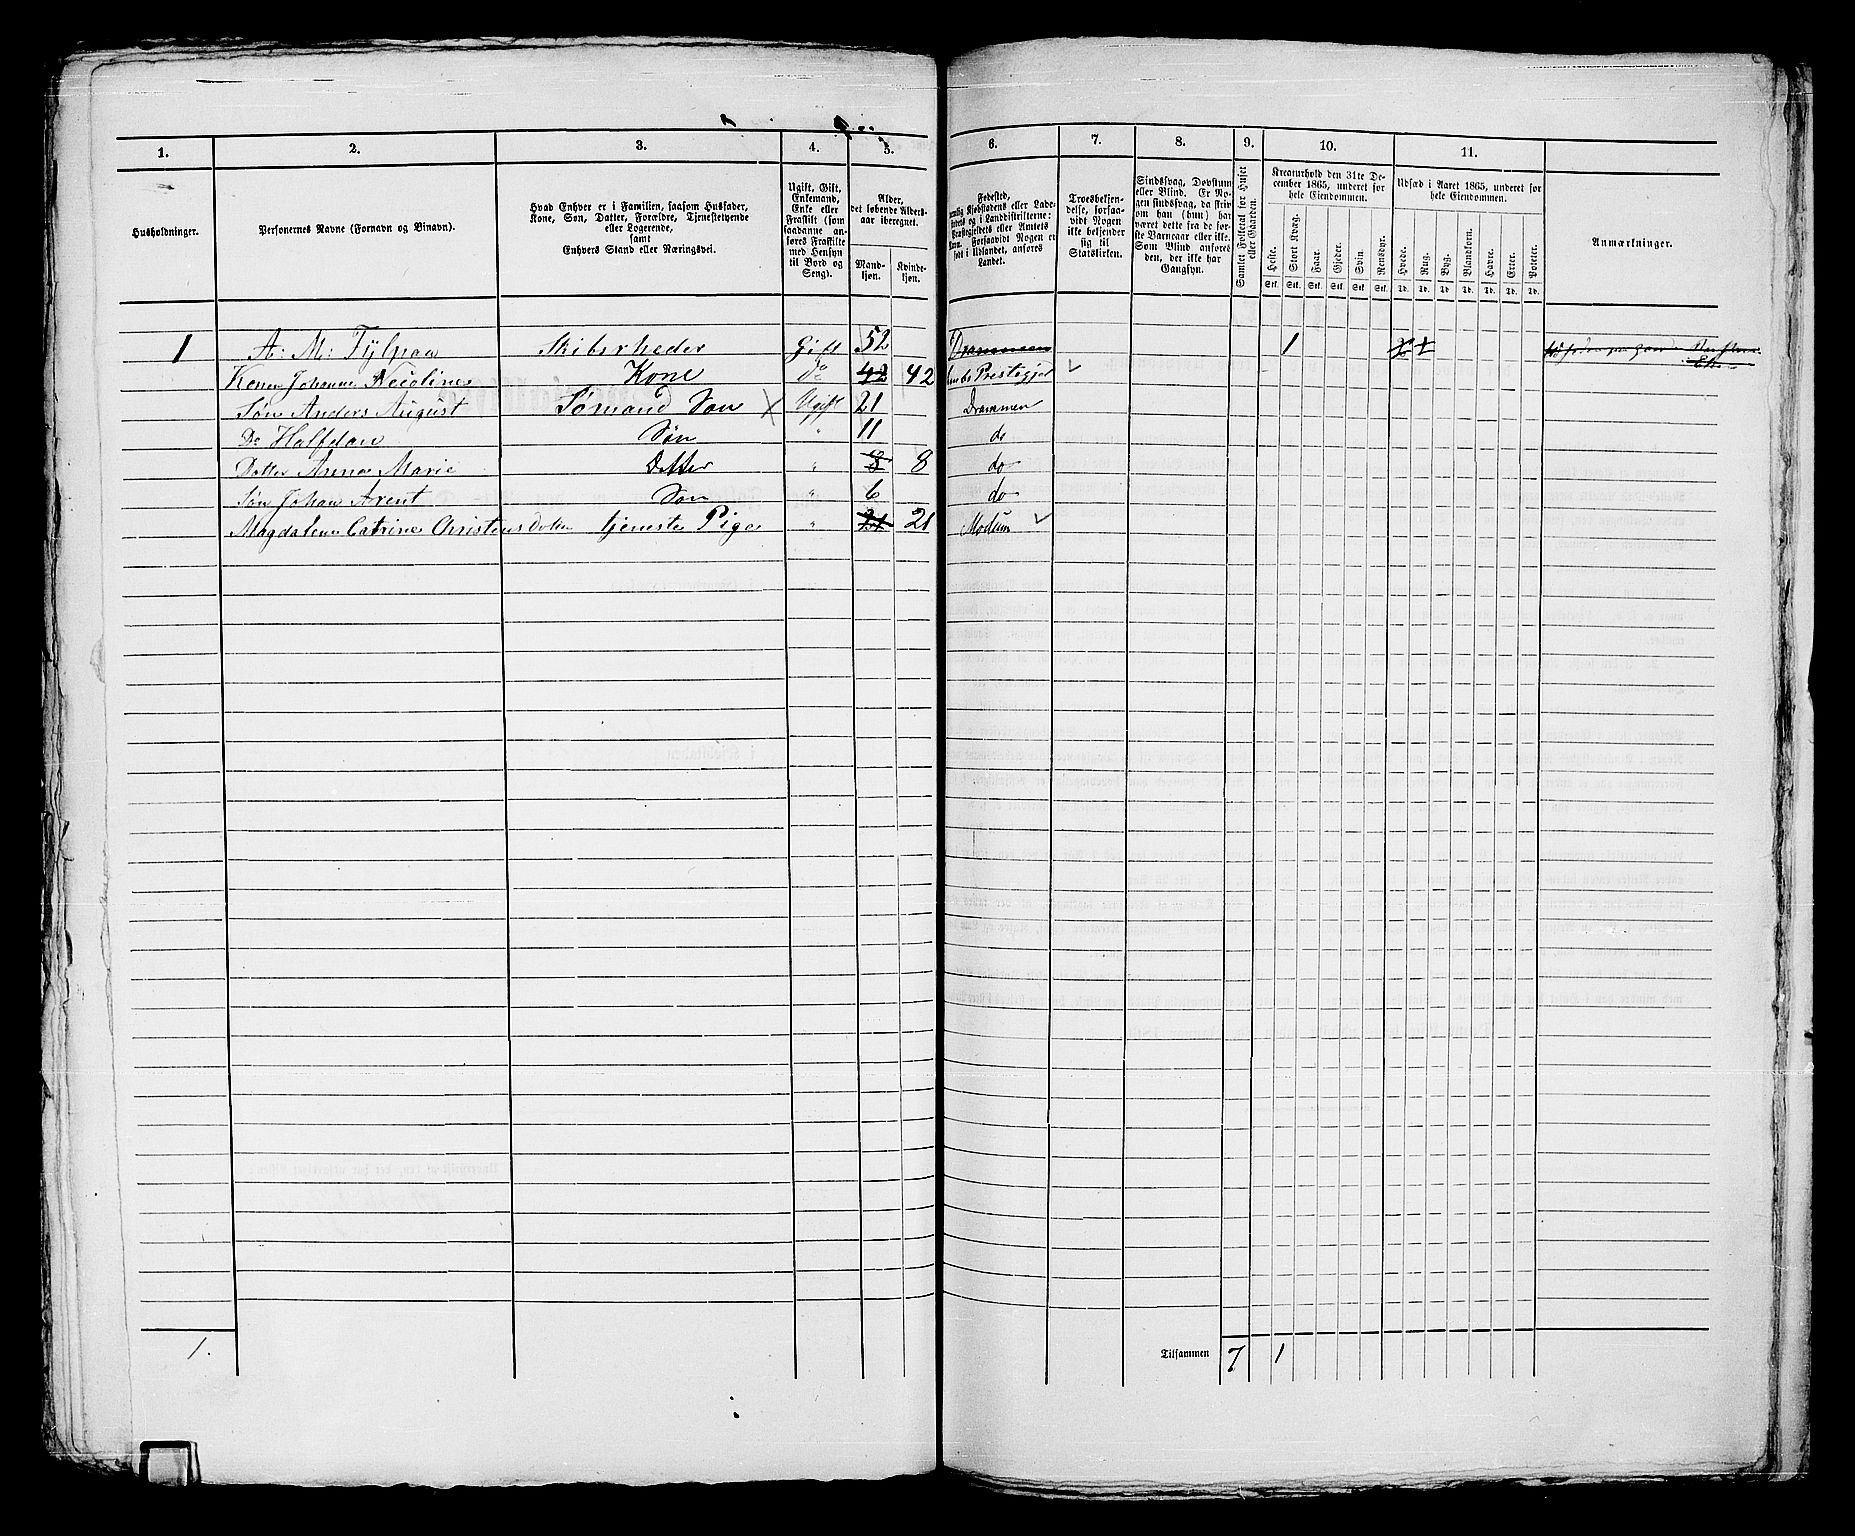 1. 2. 3. 4. 5. 6. 7. 8. 9. 10. 11.
Husholdninger.
Personernes Navne (Fornavn og Binavn).
Hvad Enhver er i Familien, saasom Husfader,
Kone, Søn, Datter, Forældre, Tjenestetyende
eller Logerende,
samt
Enhvers Stand eller Næringsvei.
Ugift, Gift,
Enkemand,
Enke eller
Fraskilt (som
saadanne an-
føres Fraskilte
med Hensyn
til Bord og
Seng).
Alder,
det løbende Alders-
aar iberegnet.
Mand-
kjøn.
Kvinde-
kjøn.
Fødested,
nemlig Kjøbstadens eller Lade-
stedets og i Landdistrikterne:
Præstegjeldets eller Amtets
Navn. Forsaavidt Nogen er
født i Udlandet, anføres
Landet.
Troesbekjen-
delse, forsaa-
vidt Nogen
ikke bekjender
sig til
Statskirken.
Sindssvag, Døvstum
eller Blind. Er No-
gen sindssvag, da skriv
om han (hun) har
været dette fra de før-
ste Barneaar eller ikke.
Som Blind anføres
den, der ikke har
Gangsyn.
Samlet Folketal for Huset
eller Gaarden.
Kreaturhold den 31te De-
cember 1865, underet for
hele Eiendommen.
Heste. Stort Kvæg. Faar. Gjeder. Svin. Rensdyr.
Stk. Stk. Stk. Stk. Stk. Stk.
Udsæd i Aaret 1865, underet for
hele Eiendommen.
Hvede. Rug. Byg. Blandkorn. Havre. Erter. Poteter.
Td. Td. Td. Td. Td. Td. Td.
Anmærkninger.
1 A: M: Fylpaa Skibsrheder Gift 52 Drammen 1
Konen Johanne Nicoline Kone do 42 42 Prestegjel
Søn Anders August Sømand Søn X Ugift 21 Drammen
Do Halfdan Søn " 11 do
Dotter Anne Marie Dotter " 8 8 do
Søn Johan Arent Søn " 6 do
Magdalene Catrine Christens Dotter tjeneste Pige " 21 21 Modum
1.
Tilsammen 7 1